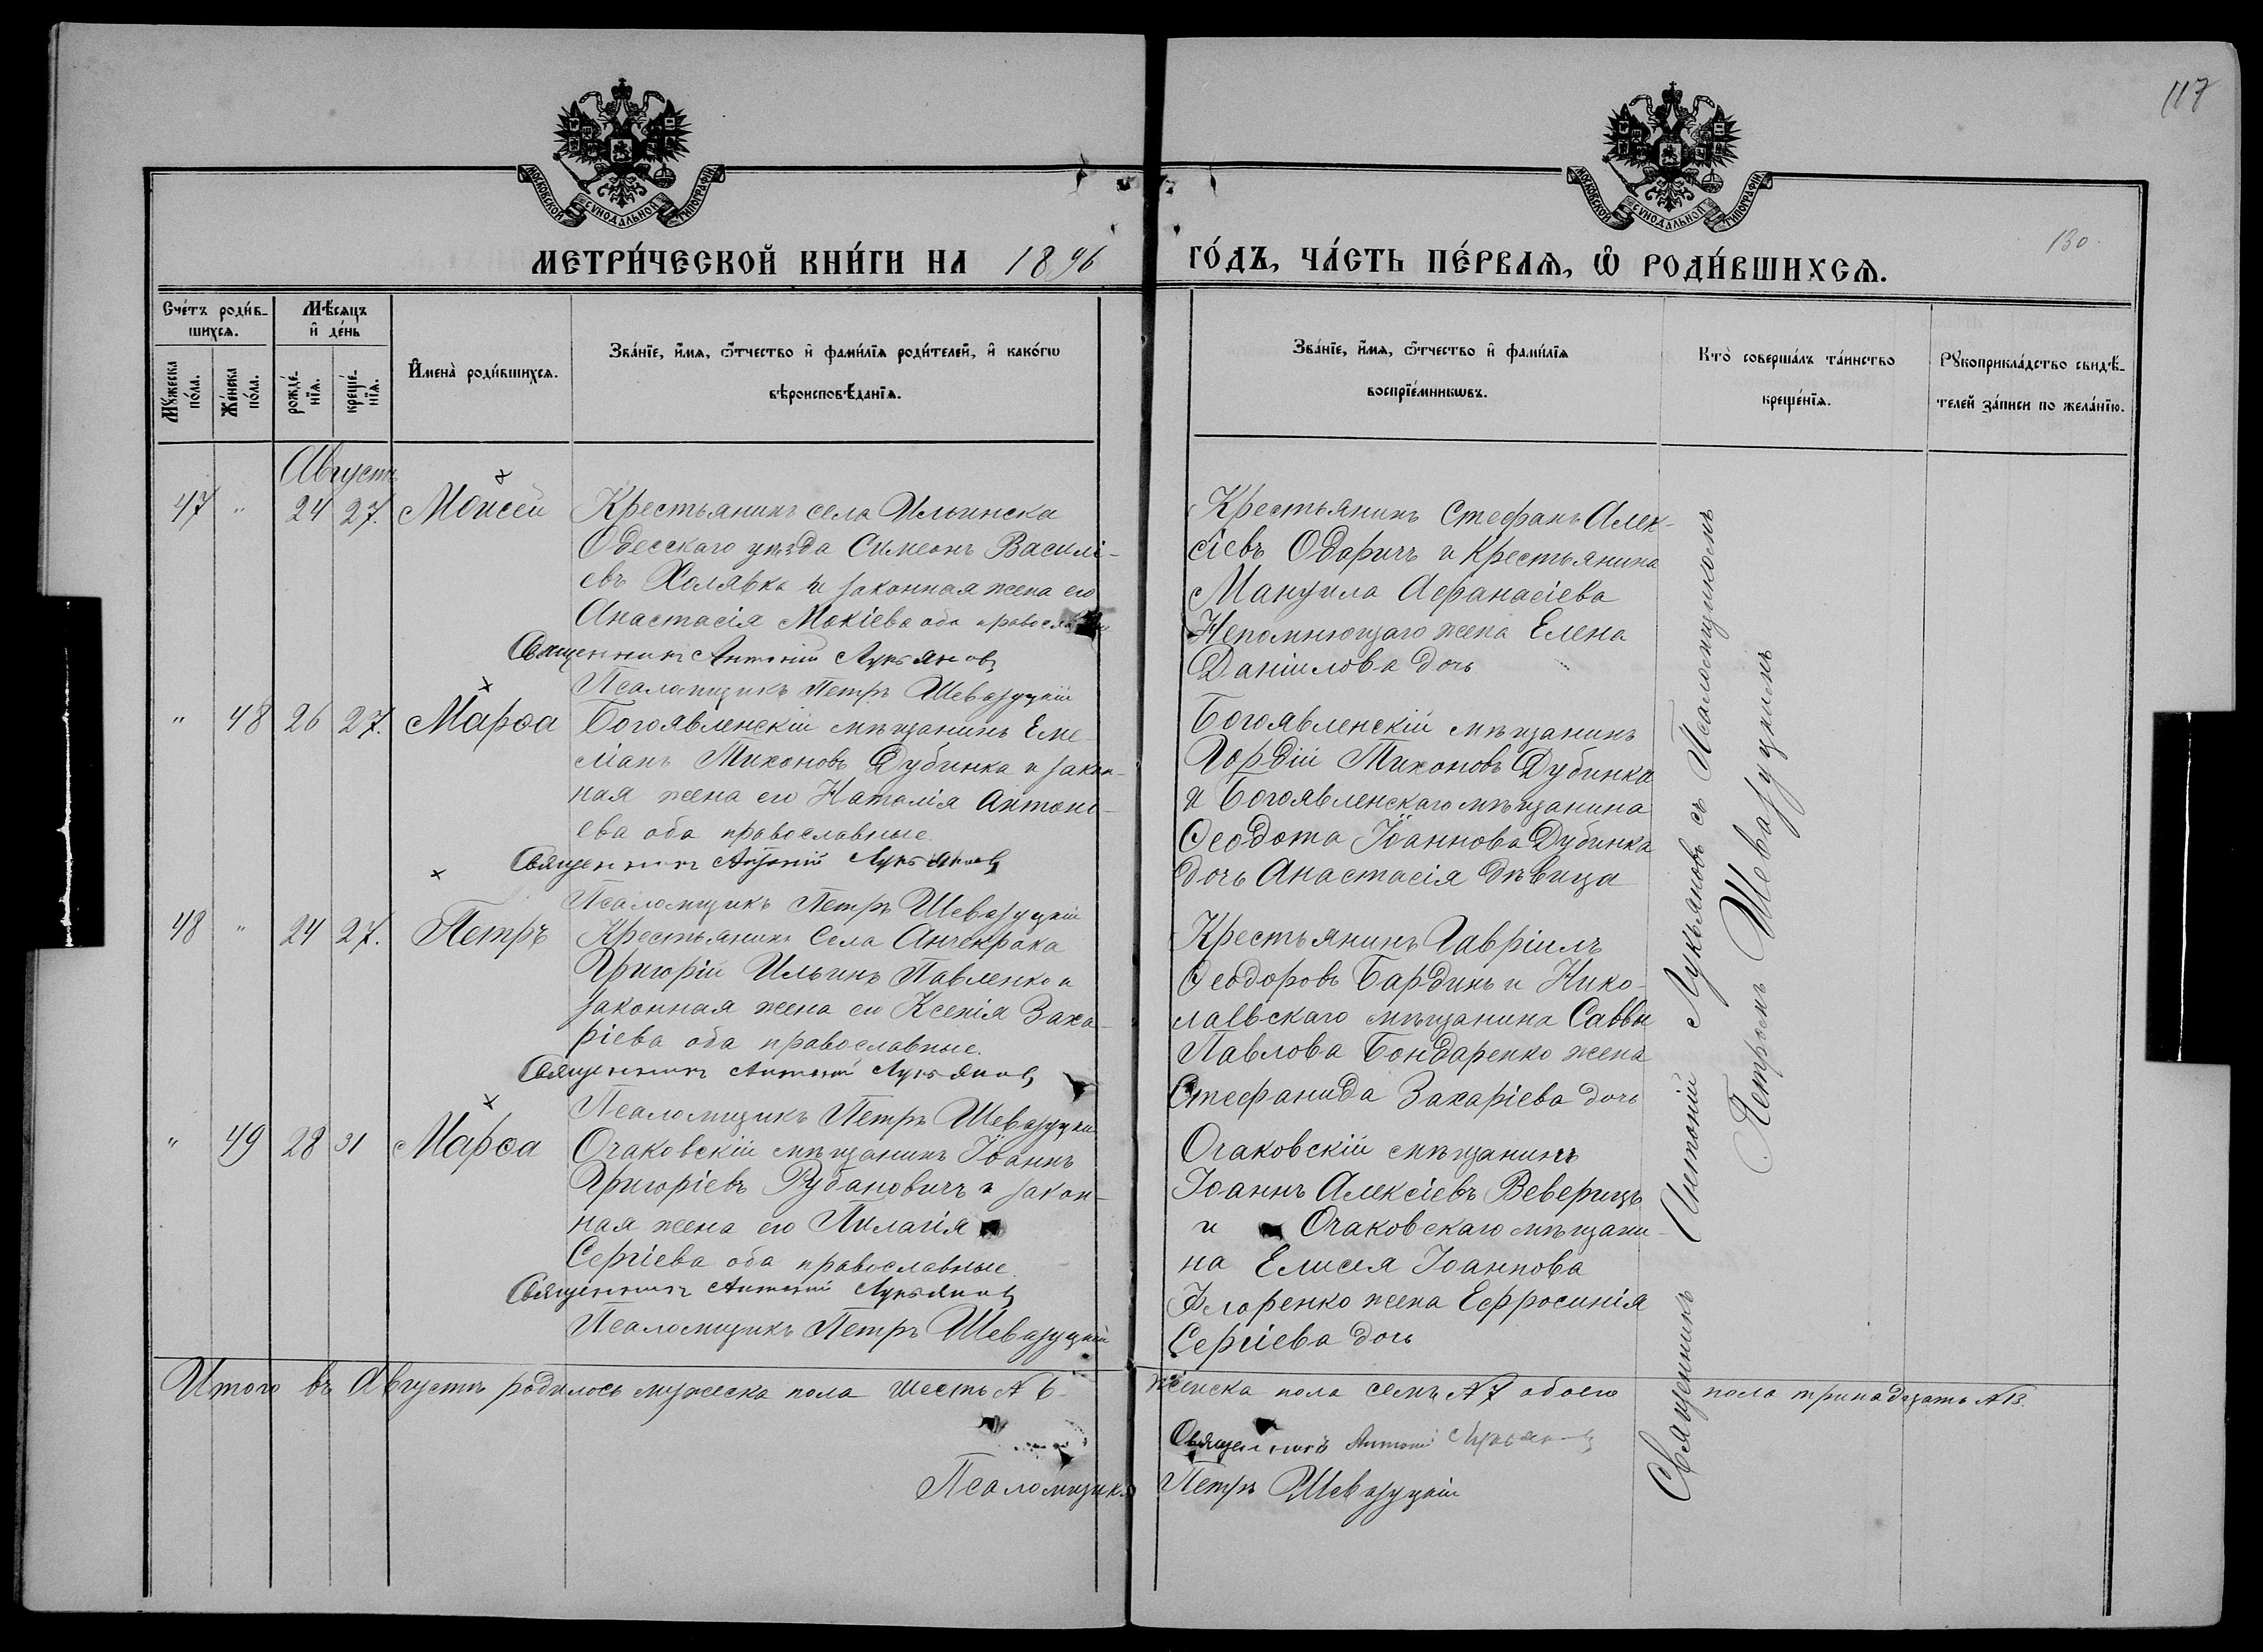 117
МОСКОВСКОЙ СѴНОДАЛЬНОЙ ТИПОГРАФІИ
МОСКОВСКОЙ СѴНОДАЛЬНОЙ ТИПОГРАФІИ
130.
МЕТРИ́ЧЕСКОЙ КНИ́ГИ НА 1896 ГО́ДЪ, ЧА́СТЬ ПЕ́РВАѦ, Ѡ҆ РОДИ́ВШИХСѦ.
Сче́тъ роди́в-
шихсѧ.
Мѣ́сѧцъ
и҆ де́нь
Мꙋ́жеска
по́ла.
Же́нска
по́ла.
рожде́-
нїѧ.
креще́-
нїѧ.
И҆мена̀ роди́вшихсѧ.
Зва́нїе, и҆́мѧ, ѻ҆́тчество и҆ фами́лїѧ роди́телей, и҆ како́гѡ
вѣроисповѣ́данїѧ.
Зва́нїе, и҆́мѧ, ѻ҆́тчество и҆ фами́лїѧ
воспрїе́мникѡвъ.
Кто̀ соверша́лъ та́инство
креще́нїѧ.
Рꙋкоприкла́дство свидѣ́-
телей за́писи по жела́нїю.
Августъ
47 " 24 27. Моисей
Крестьянинъ села Ильинска
Одесскаго уѣзда Симеонъ Василі-
евъ Халявка и законная жена его
Анастасія Мокіева оба православные
Священникъ Антоній Лукьяновъ
Псаломщикъ Петръ Шевазуцкій
Крестьянинъ Стефанъ Алек-
сіевъ Одаричъ и крестьянина
Мануила Афанасіева
Непомнющаго жена Елена
Даніилова дочь
" 48 26 27. Марѳа
Богоявленскій мѣщанинъ Еме-
ліанъ Тихоновъ Дубинка и закон-
ная жена его Наталія Антоні-
ева оба православные.
Священникъ Антоній Лукьяновъ
Псаломщикъ Петръ Шевазуцкій
Богоявленскій мѣщанинъ
Гордій Тихоновъ Дубинка
и Богоявленскаго мѣщанина
Ѳеодота Іоаннова Дубинка
дочь Анастасія дѣвица
48 " 24 27. Петръ
Крестьянинъ села Анчекрака
Григорій Ильинъ Павленко и
законная жена его Ксенія Заха-
ріева оба православные.
Священникъ Антоній Лукьяновъ
Псаломщикъ Петръ Шевазуцкій
Крестьянинъ Гавріилъ
Ѳеодоровъ Бардинъ и Нико-
лаевскаго мѣщанина Саввы
Павлова Бондаренко жена
Стефанида Захаріева дочь
" 49 28 31 Марѳа
Очаковскій мѣщанинъ Іоаннъ
Григоріевъ Рубановичъ и закон-
ная жена его Пилагія
Сергіева оба православные
Священникъ Антоній Лукьяновъ
Псаломщикъ Петръ Шевазуцкій
Очаковскій мѣщанинъ
Іоаннъ Алексіевъ Веверицъ
и Очаковскаго мѣщани-
на Елисея Іоаннова
Флоренко жена Ефросинія
Сергіева дочь
Священникъ Антоній Лукьяновъ съ Псаломщикомъ
Петромъ Шевазуцкимъ
Итого въ Августѣ родилось мужеска пола шесть № 6 женска пола семь № 7 обоего пола тринадцать № 13.
Священникъ Антоній Лукьяновъ
Псаломщикъ Петръ Шевазуцкій